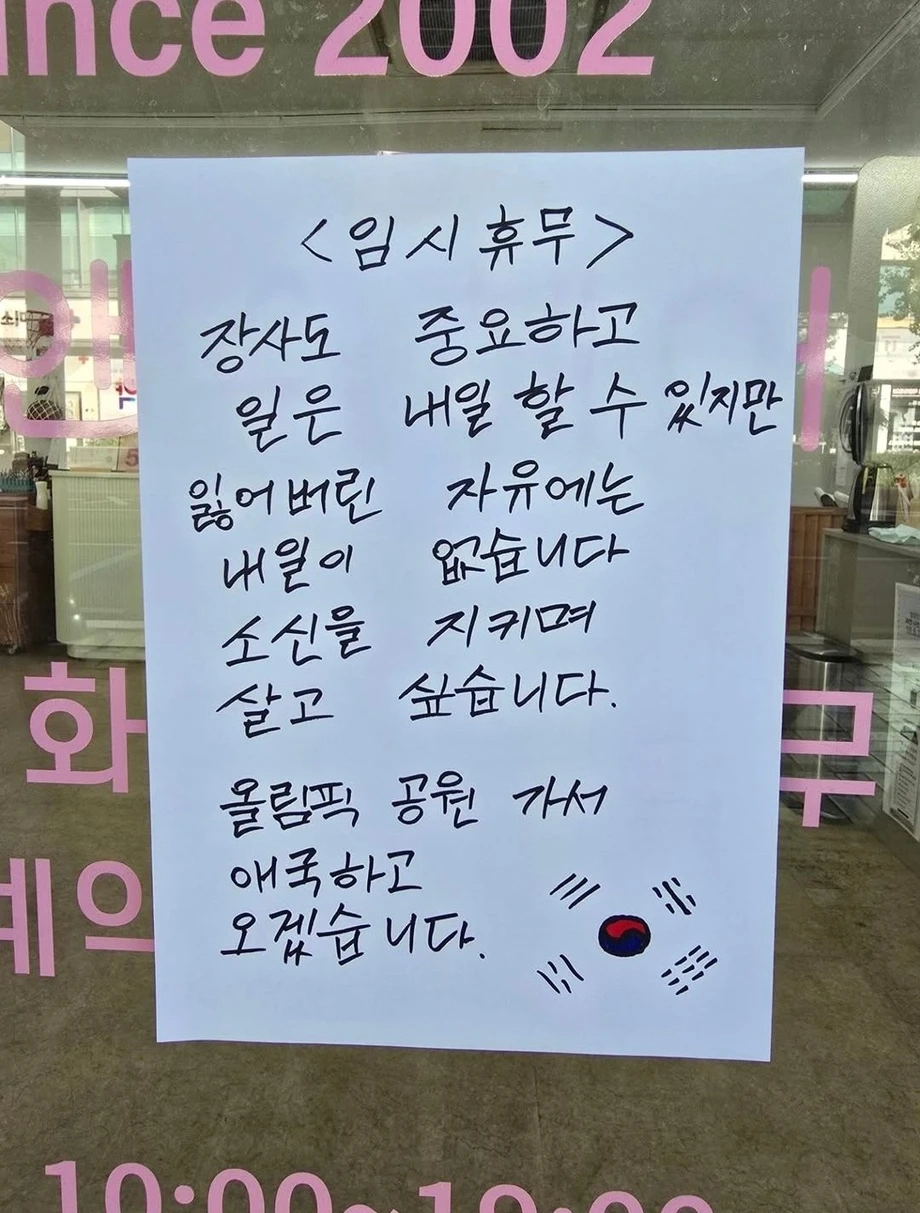 ince 2002
<임시휴무>
장사도 중요하고
일은 내일 할 수 있지만
잃어버린 자유에는
내일이 없습니다
소신을 지키며
살고 싶습니다.
올림픽 공원 가서
애국하고
오겠습니다.
화
무
예의